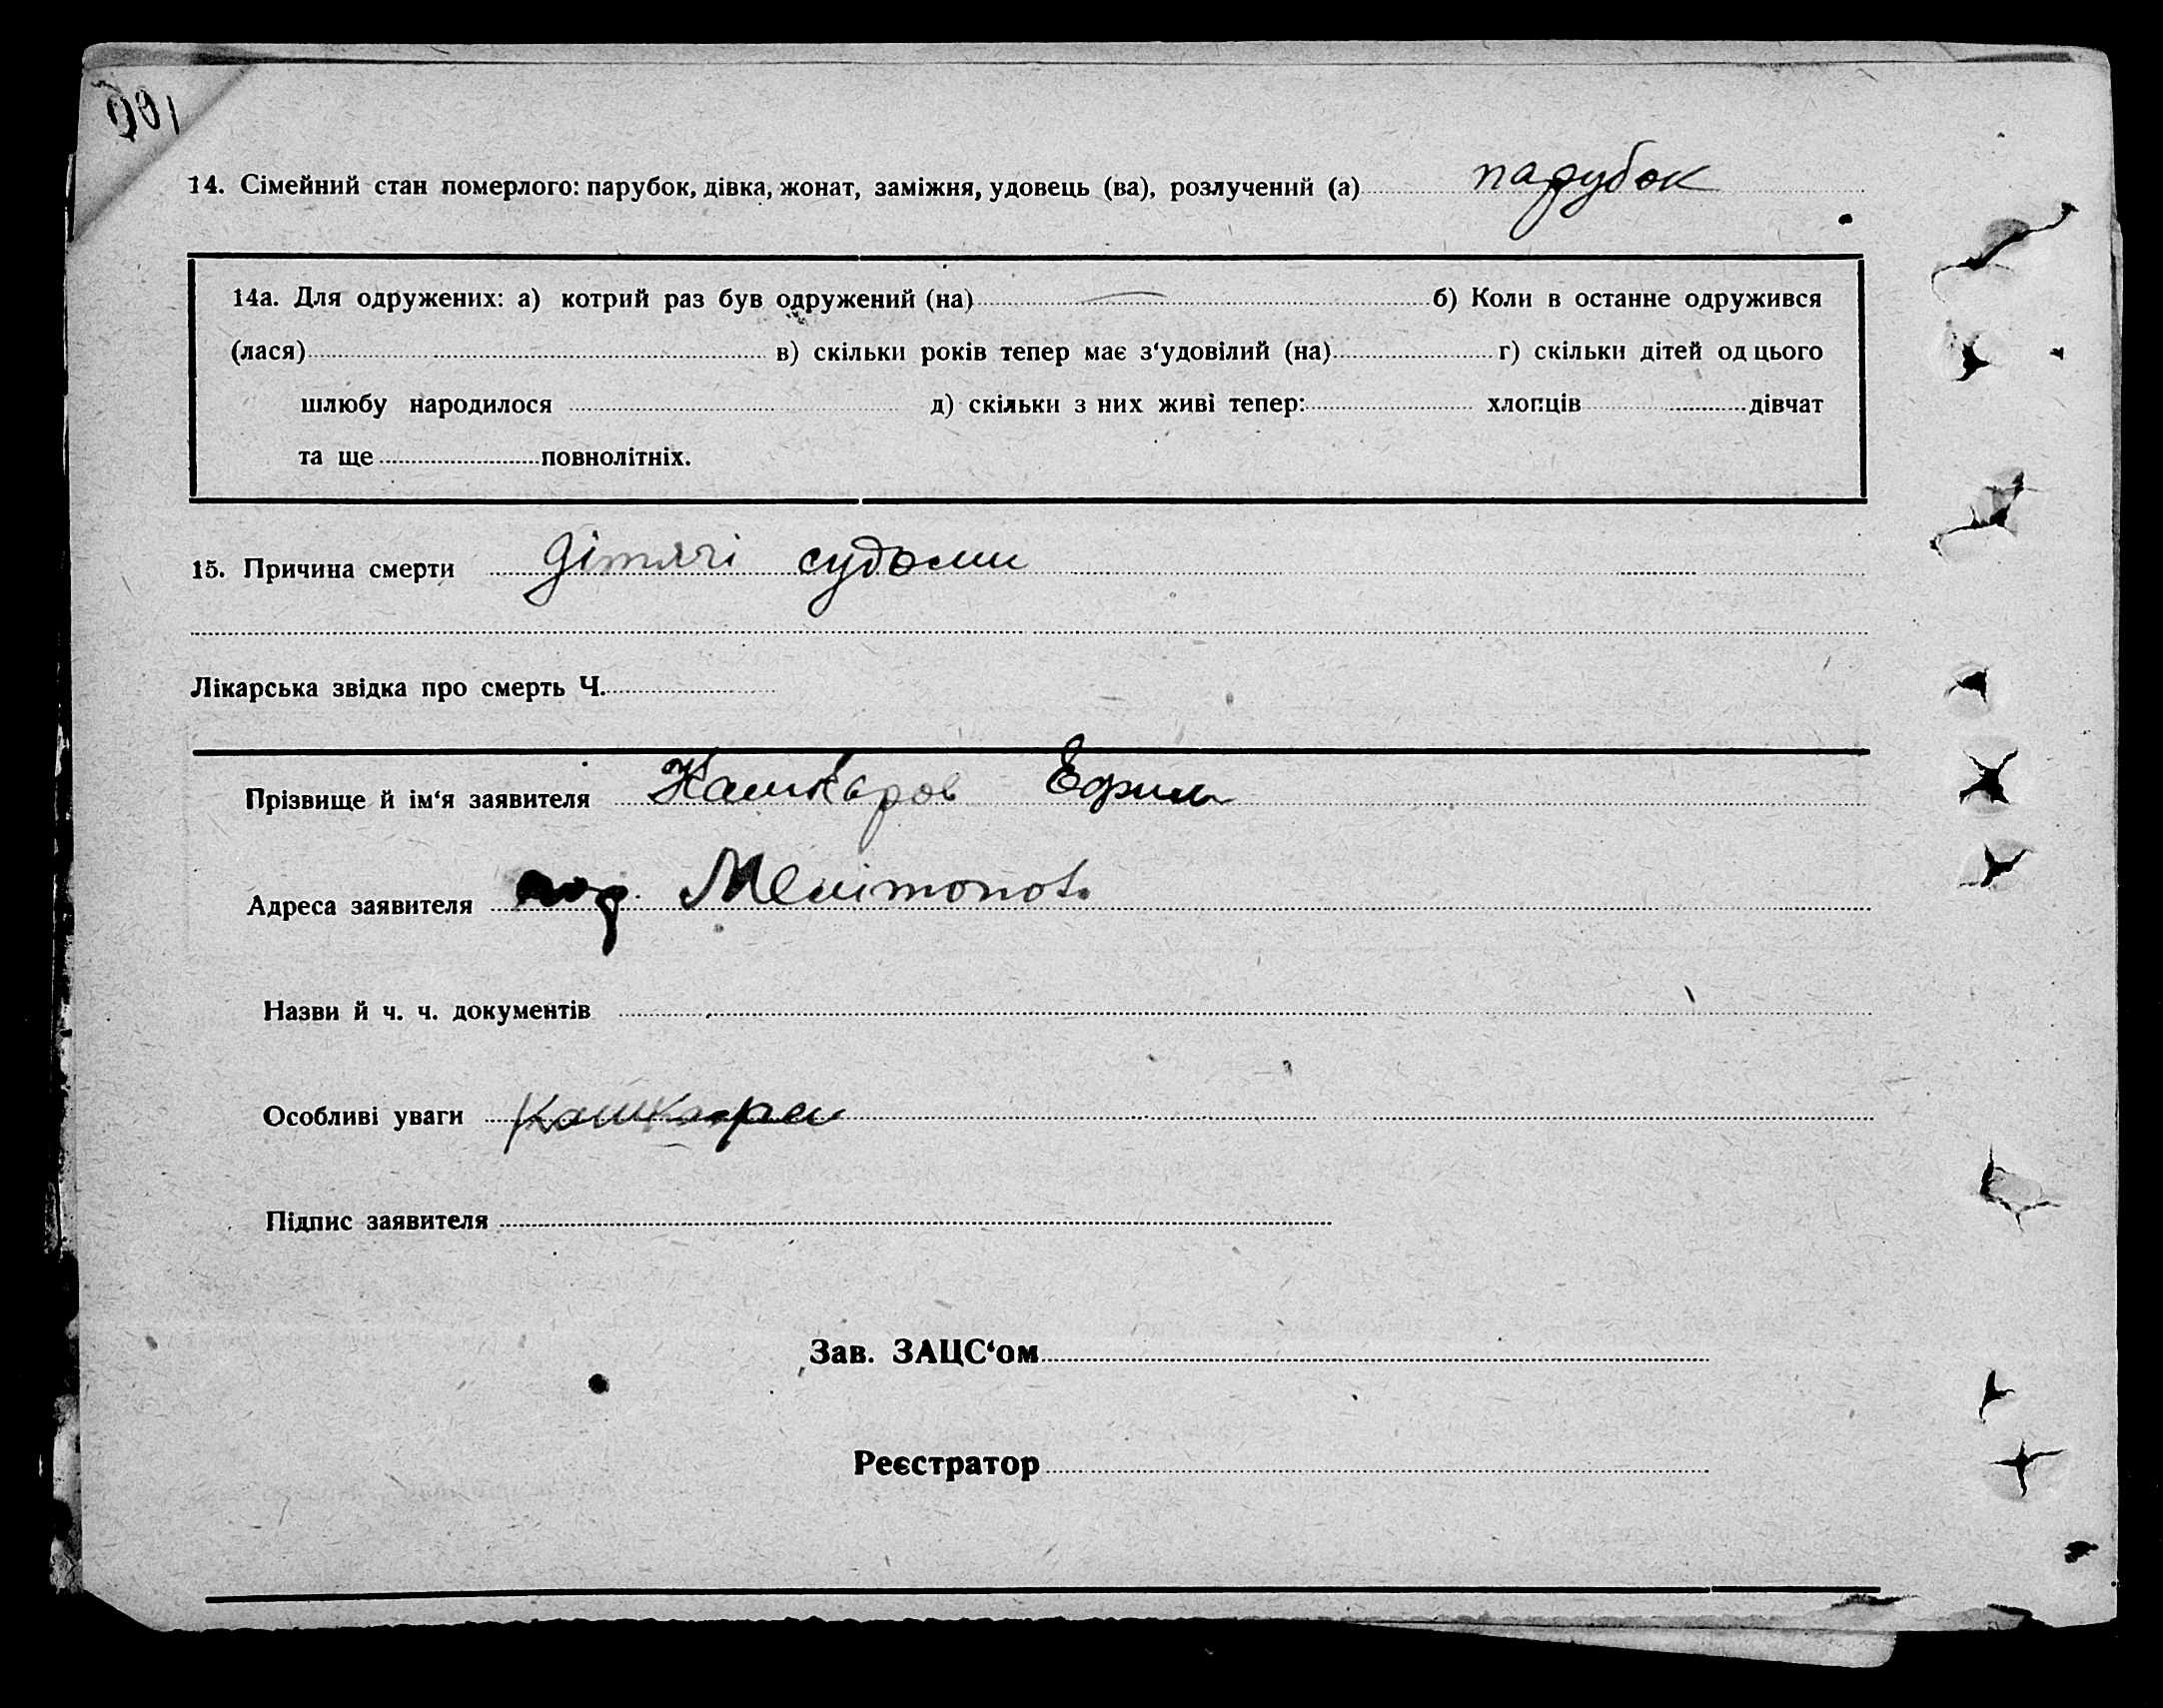 14. Сімейний стан померлого: парубок, дівка, жонат, заміжня, удовець (ва), розлучений (а) парубок
14а. Для одружених: а) котрий раз був одружений (на) б) Коли в останне одружився
(лася) в) скільки років тепер має з‘удовілий (на) г) скільки дітей од цього
шлюбу народилося д) скільки з них живі тепер: хлопців дівчат
та ще повнолітніх.
15. Причина смерти дітячі судоми
Лікарська звідка про смерть Ч.
Прізвище й ім‘я заявителя Кашкаров Ефим
Адреса заявителя
Назви й ч. ч. документів
Особливі уваги
Підпис заявителя
Зав. ЗАЦС‘ом
Реєстратор